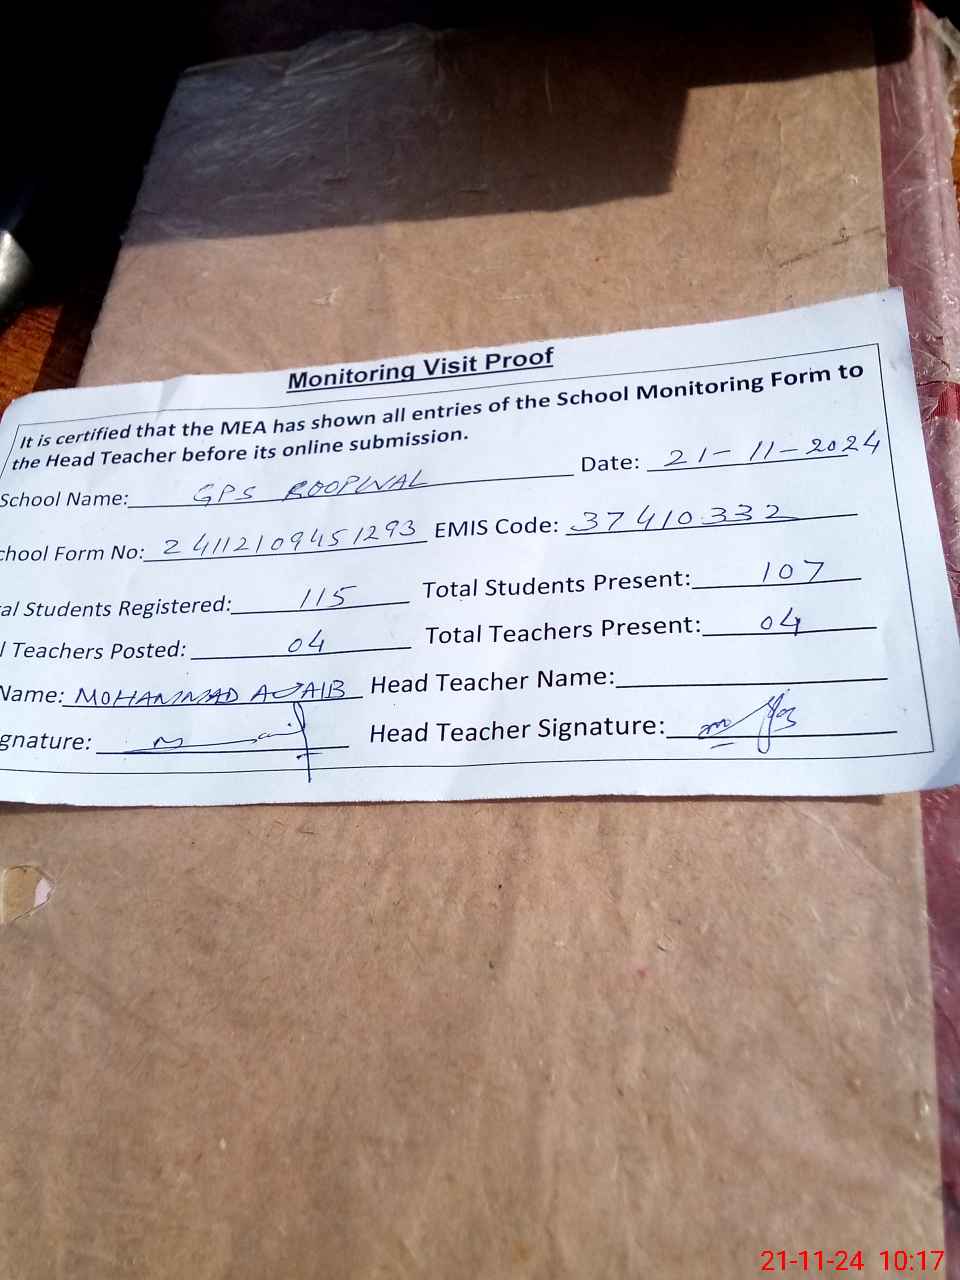 Monitoring Visit Proof
It is certified that the MEA has shown all entries of the School Monitoring Form to
the Head Teacher before its online submission.
School Name: GPS ROOPWAL Date: 21-11-2024
chool Form No: 24112109451293 EMIS Code: 37410332
al Students Registered: 115 Total Students Present: 107
l Teachers Posted: 04 Total Teachers Present: 04
Name: MOHAMMAD AJAIB Head Teacher Name:
gnature: Head Teacher Signature:
21-11-24 10:17